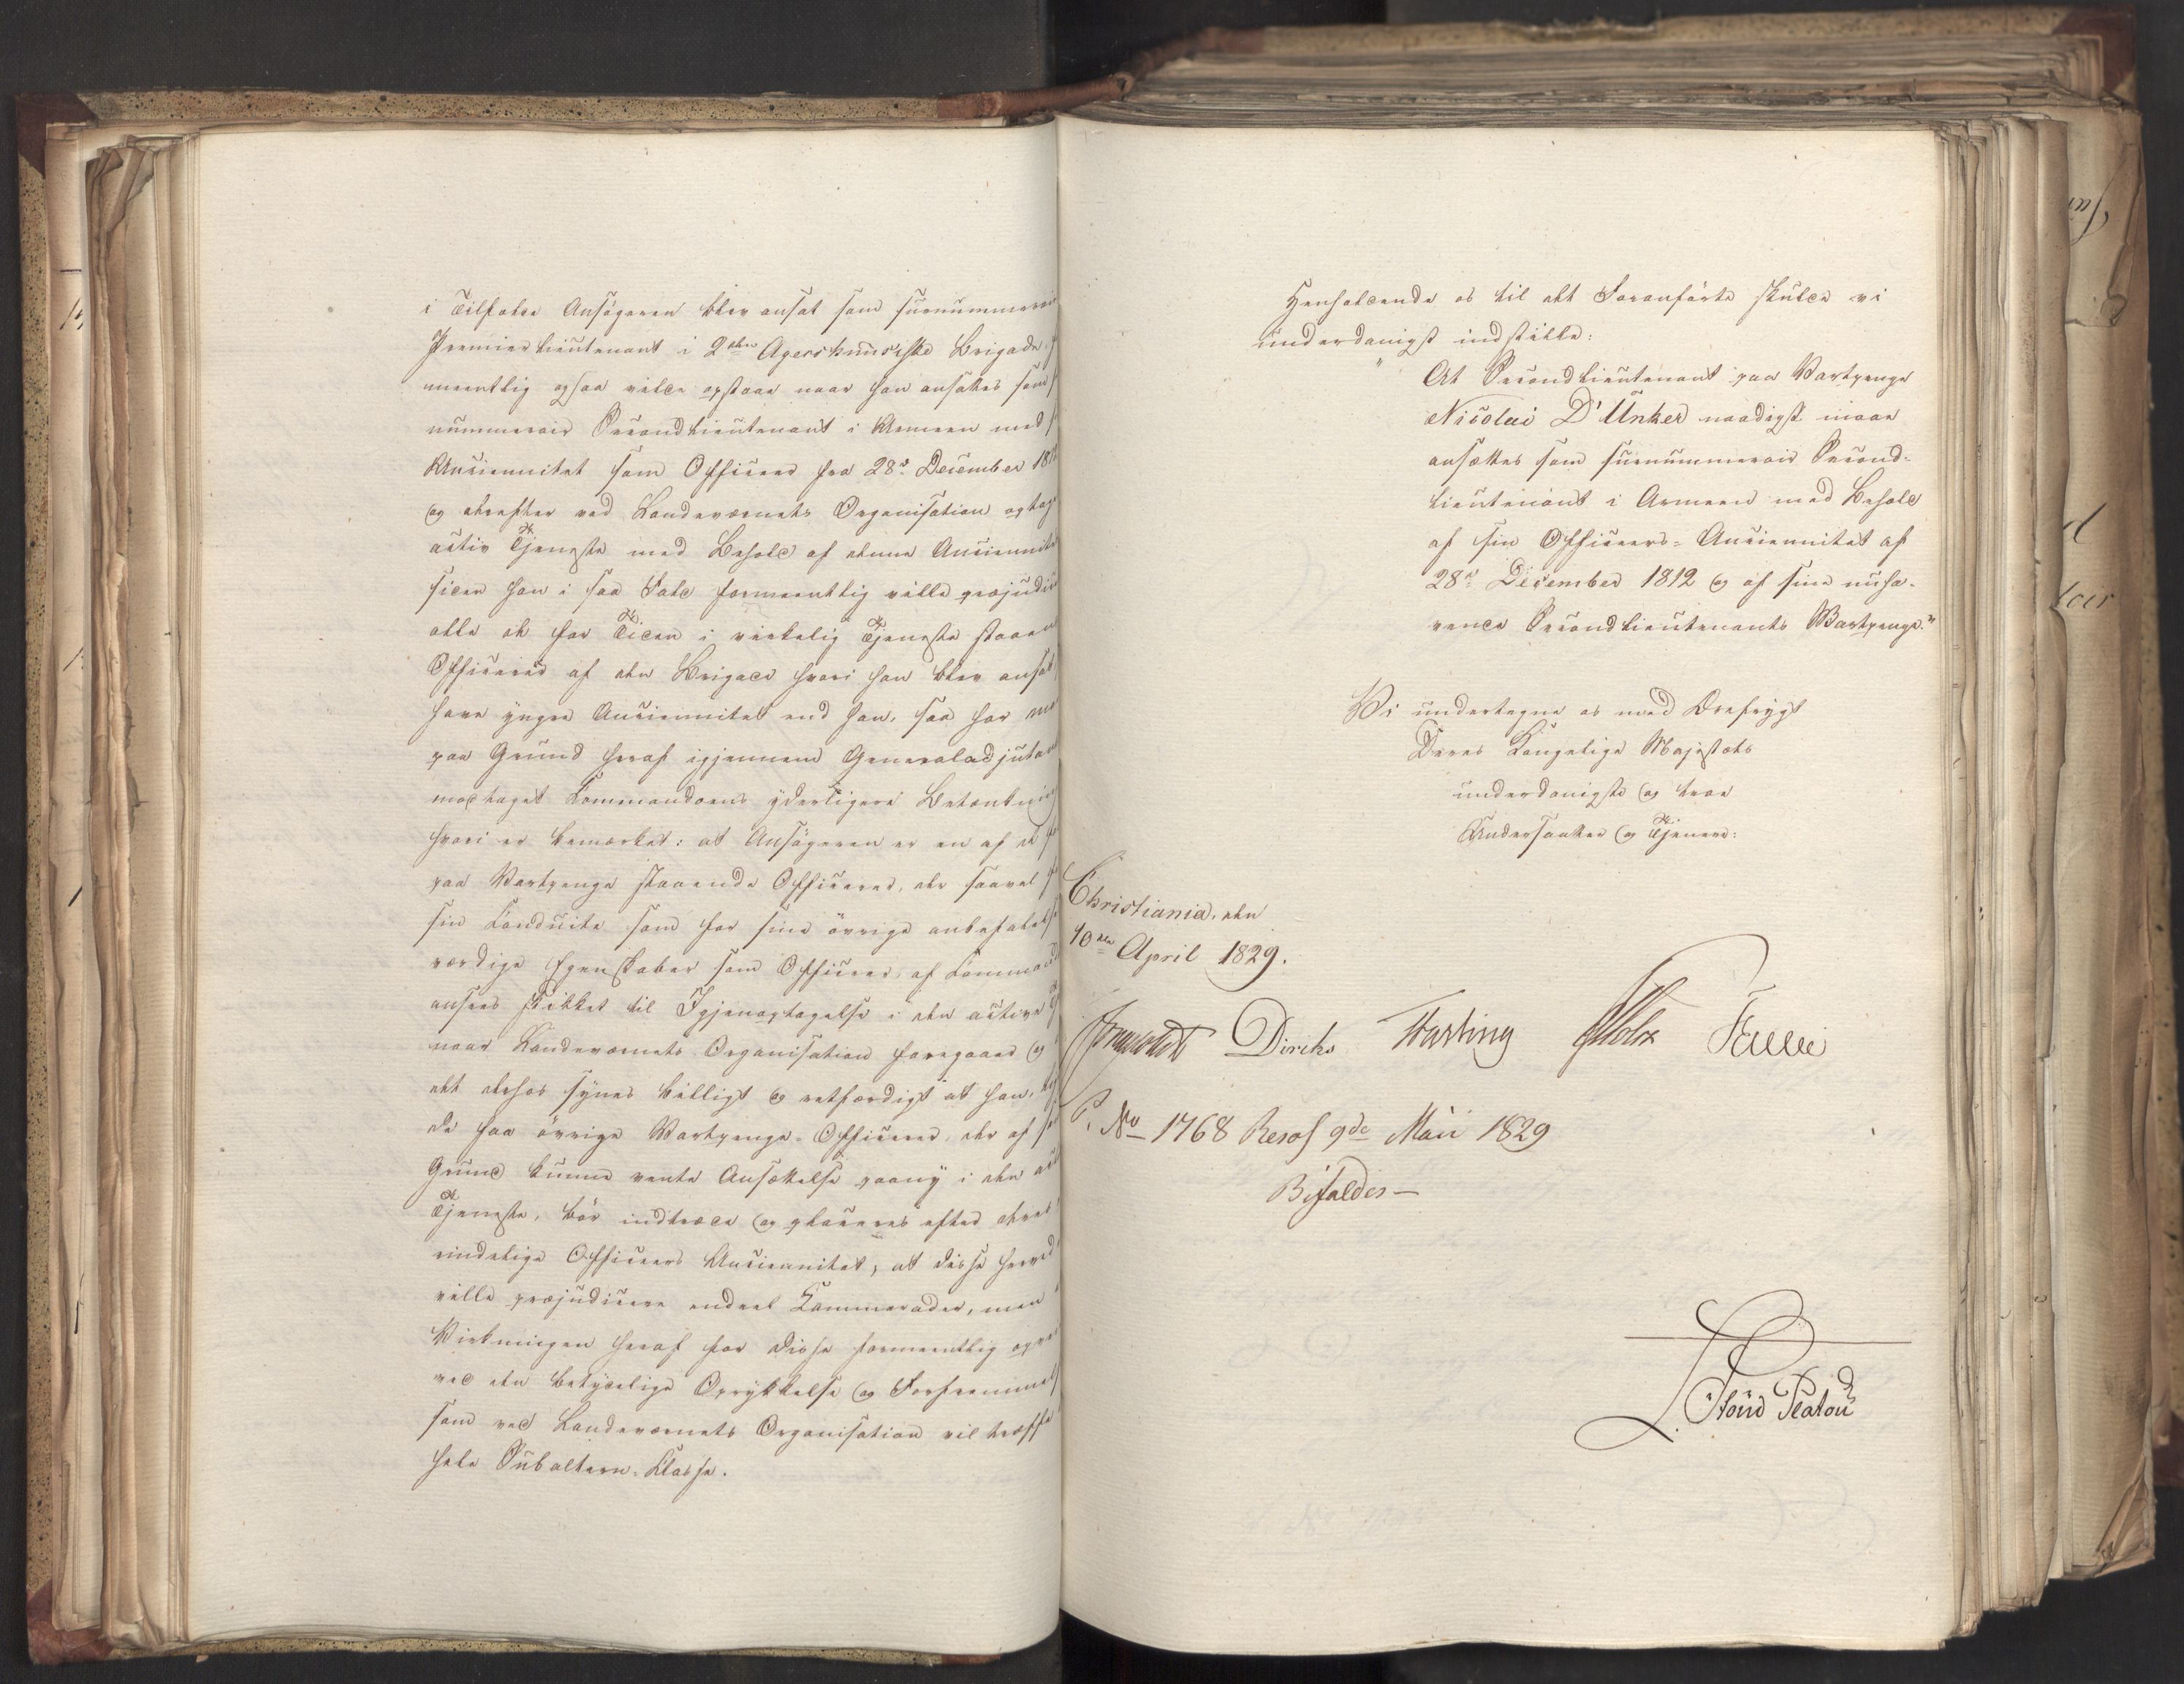 i Tilfælde Ansögeren blev ansat som surnummerair
Premierlieutenant i 2den Agershuusiske Brigade,
meentlig ogsaa vilde opstaae naar han ansættes som
nummerair Secondlieutenant i Armeen med
Anciennitet som Officeer fra 28de December 1812
og derefter ved Landeværnets Organisation optages
activ Tjeneste med Behold af denne Anciennitet
siden han i saa Fald formeentlig vilde præjudicere
alle de for Tiden i virkelig Tjeneste staaende
Officerer af den Brigade hvori han blev ansat
have yngre Anciennitet end han, saa har man
paa Grund heraf igjennem Generaladjutanten
modtaget Kommandoens yderligere Betænkning
hvori er bemærket: at Ansögeren er en af de
paa Vartpenge staaende Officerer, der saavel
sin Conduite som for sine övrige anbefalelses
værdige Egenskaber som Officeer, af Commandoen
ansees skikket til Igjenoptagelse i den active
naar Landeværnets Organisation foregaaer og
det derhos synes billigt og retfærdigt at han,
de faa övrige Vartpenge-Officerer, der af
Grund kunne vente Ansættelse paany i den
Tjeneste, bör indtræde og placeres efter deres
rindelige Officeers Anciennitet, at disse herved
ville præjudicere endeel Kammerader, men
Virkningen heraf for disse formeentlig
ved den betydelige Oprykkelse og Forfremmelse
som ved Landeværnets Organisation vil træffe
hele Subaltern-Klasse.
Henholdende os til det Foranförte skulde vi
underdanigst indstille:
"At Secondlieutenant paa Vartpenge
Nicolai D'Unker naadigst maae
ansættes som surnummerair Second-
lieutenant i Armeen med Behold
af sin Officeers-Anciennitet af
28de December 1812 og af sine nuha-
vende Secondlieutenants Vartpenge."
Vi undertegne os med Ærefrygt
Deres Kongelige Majestæts
underdanigste og troe
Undersaatter og Tjenere:
Christiania, den
10de April 1829.
Diriks Fasting Holst
P. No 1768 Resol 9de Maii 1829
Bifaldes—
Stoud Platou